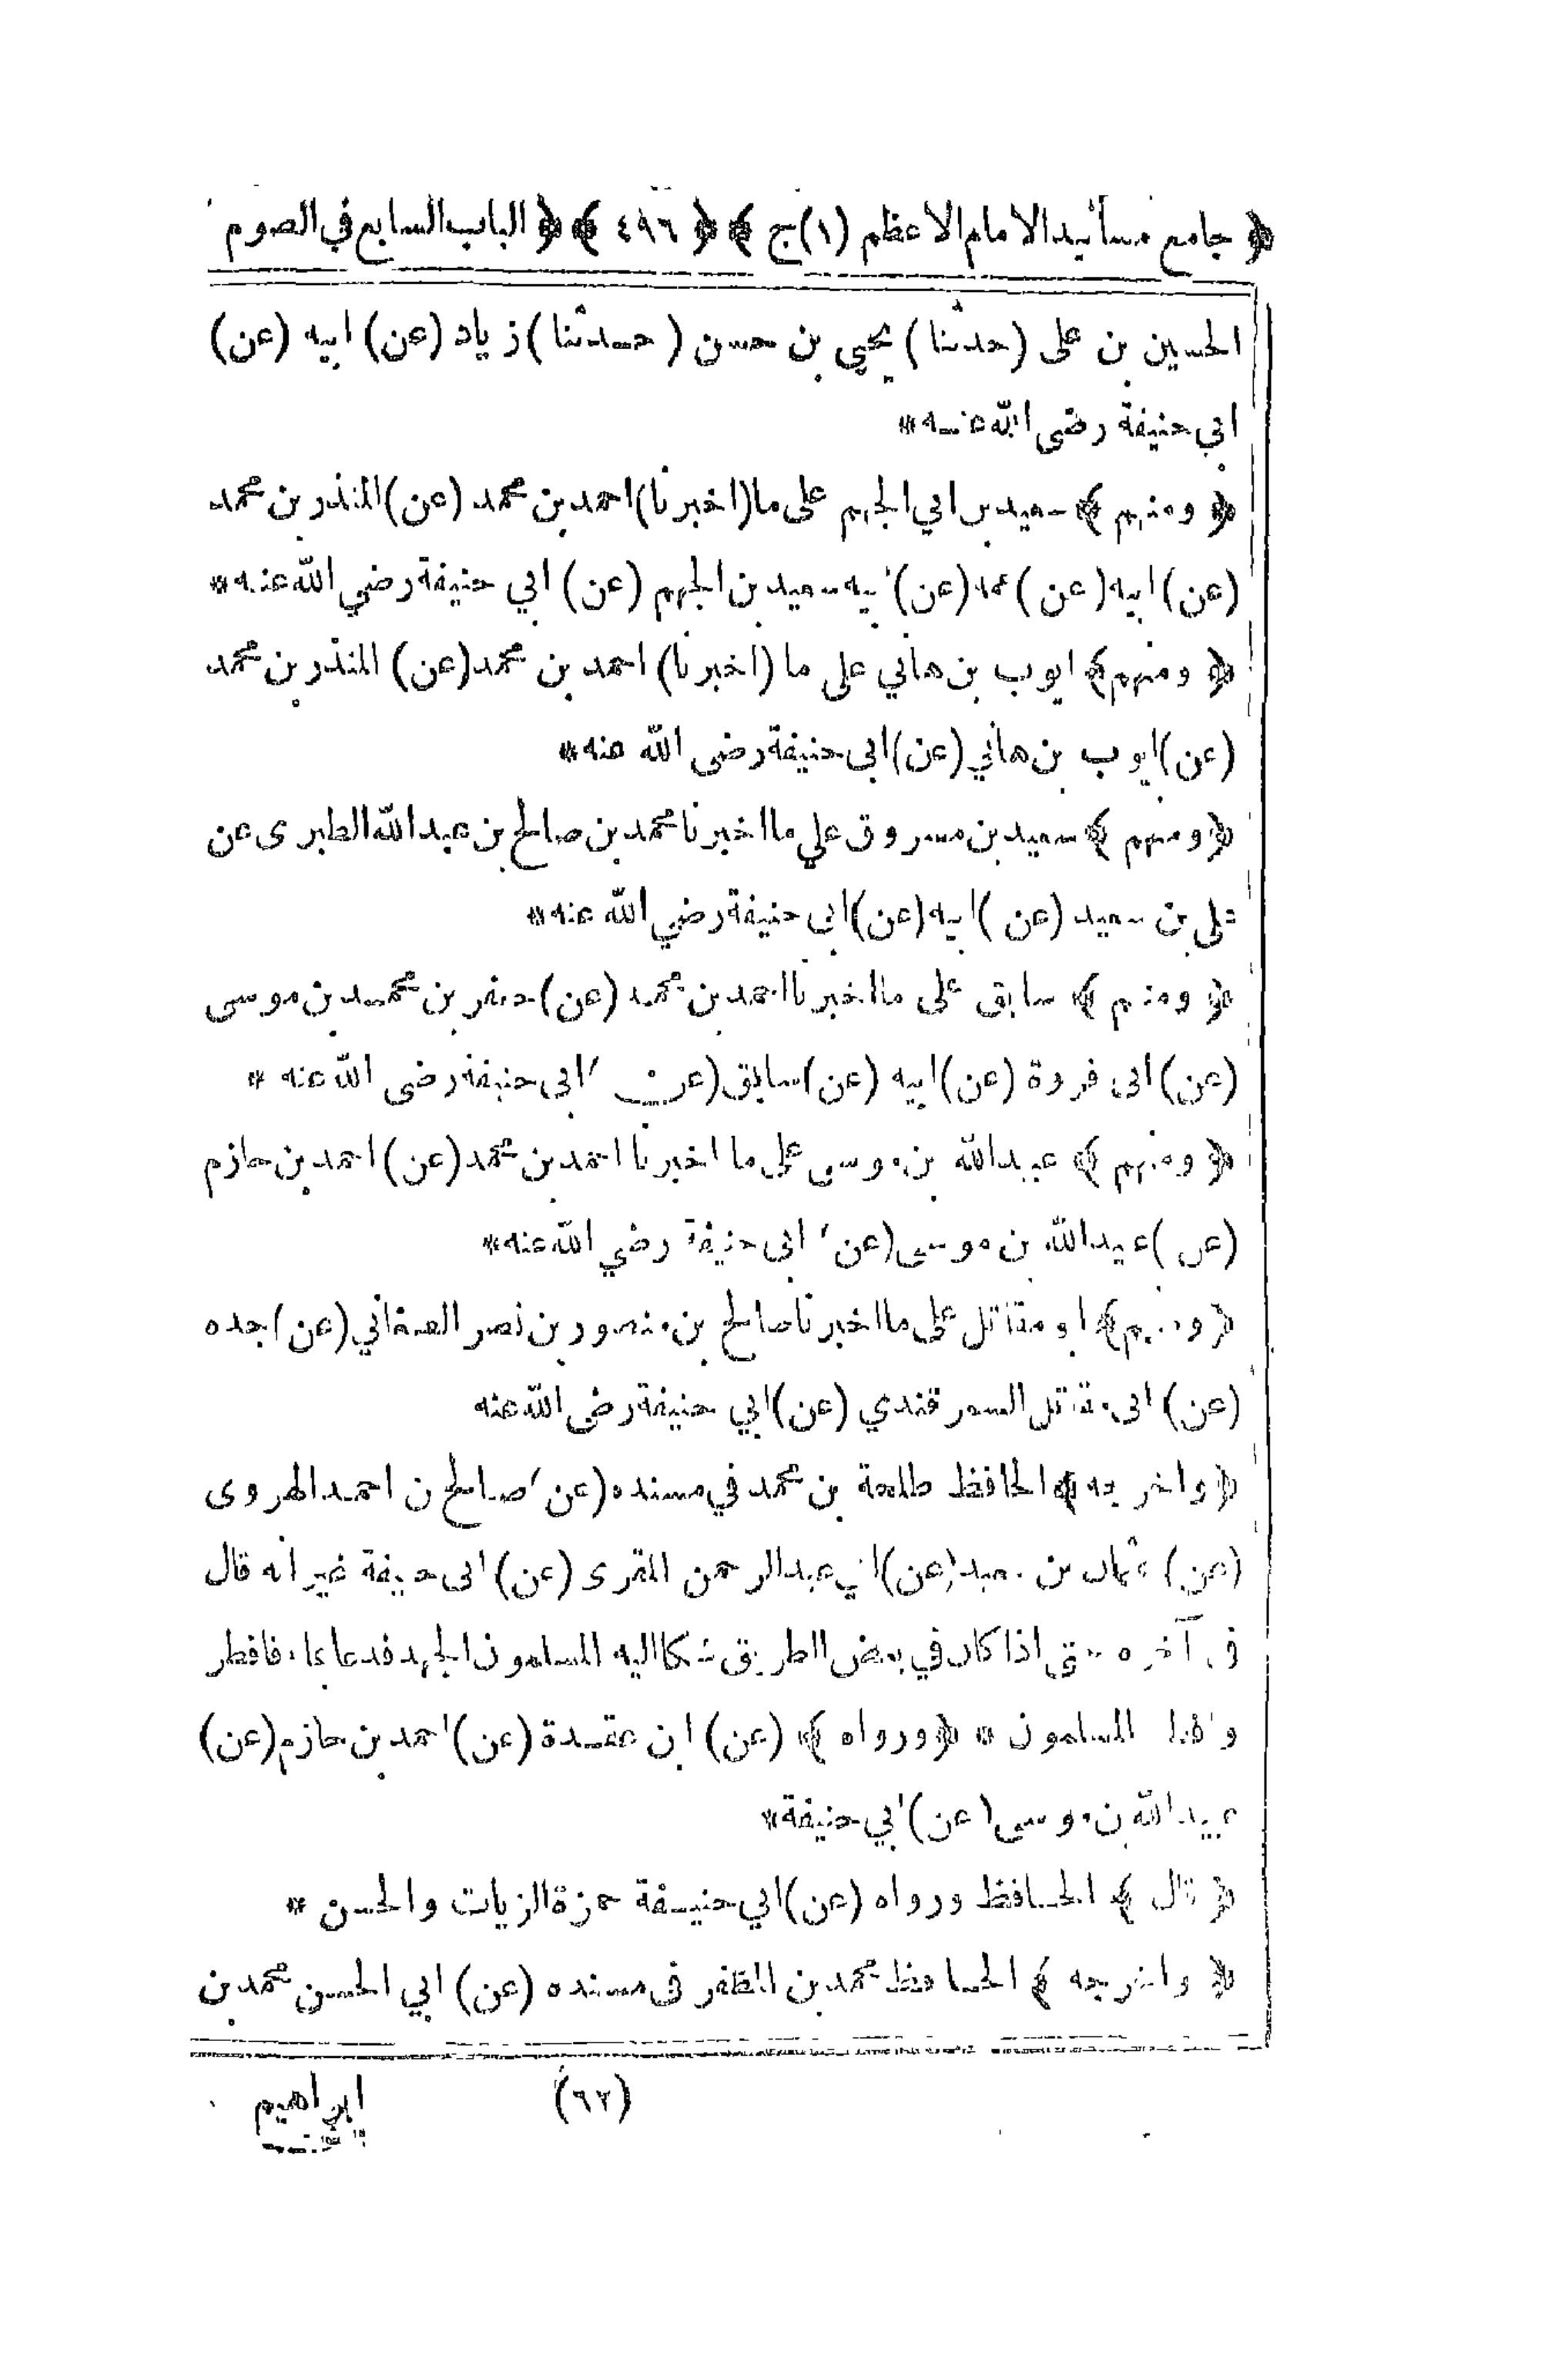 ﴿ جامع مسانيد الامام الاعظم (١) ج ﴾ ﴿ ٤٩٦ ﴾ ﴿ الباب السابع في الصوم
الحسين بن على (حدثنا) يحيى بن حسن (حدثنا) زياد (عن) ابيه (عن)
ابي حنيفة رضى الله عنه*
﴿ ومنهم ﴾ سعيد بن ابي الجهم على ما (اخبرنا) احمد بن محمد (عن) المنذر بن محمد
(عن) ابيه (عن) عمه (عن) ابيه سعيد بن الجهم (عن) ابي حنيفة رضي الله عنه*
﴿ ومنهم ﴾ ايوب بن هاني على ما (اخبرنا) احمد بن محمد (عن) المنذر بن محمد
(عن) ايوب بن هاني (عن) ابى حنيفة رضى الله عنه*
﴿ ومنهم ﴾ سعيد بن مسروق علي ما اخبرنا محمد بن صالح بن عبد الله الطبرى عن
على بن سعيد (عن) ابيه (عن) ابى حنيفة رضي الله عنه*
﴿ ومنهم ﴾ سابق على ما اخبرنا احمد بن محمد (عن) جعفر بن محمد بن موسى
(عن) ابى فروة (عن) ابيه (عن) سابق (عن) ابى حنيفة رضى الله عنه *
﴿ ومنهم ﴾ عبيد الله بن موسى على ما اخبرنا احمد بن محمد (عن) احمد بن حازم
(عن) عبيد الله بن موسى (عن) ابى حنيفة رضي الله عنه*
﴿ ومنهم ﴾ ابو مقاتل على ما اخبرنا صالح بن منصور بن نصر الصغاني (عن) جده
(عن) ابى مقاتل السمرقندي (عن) ابي حنيفة رضى الله عنه
﴿ واخرجه ﴾ الحافظ طلحة بن محمد في مسنده (عن) صالح بن احمد الهروى
(عن) عثمان بن سعيد (عن) ابي عبد الرحمن المقرى (عن) ابى حنيفة غير انه قال
فى آخره حتى اذا كان في بعض الطريق شكا اليه المسلمون الجهد فدعا بماء فافطر
وافطر المسلمون * ﴿ ورواه ﴾ (عن) ابن عقدة (عن) احمد بن حازم (عن)
عبيد الله بن موسى (عن) ابي حنيفة*
﴿ قال ﴾ الحافظ ورواه (عن) ابي حنيفة حمزة الزيات والحسن *
﴿ واخرجه ﴾ الحافظ محمد بن المظفر فى مسنده (عن) ابي الحسن محمد بن
(٦٢) ابراهيم